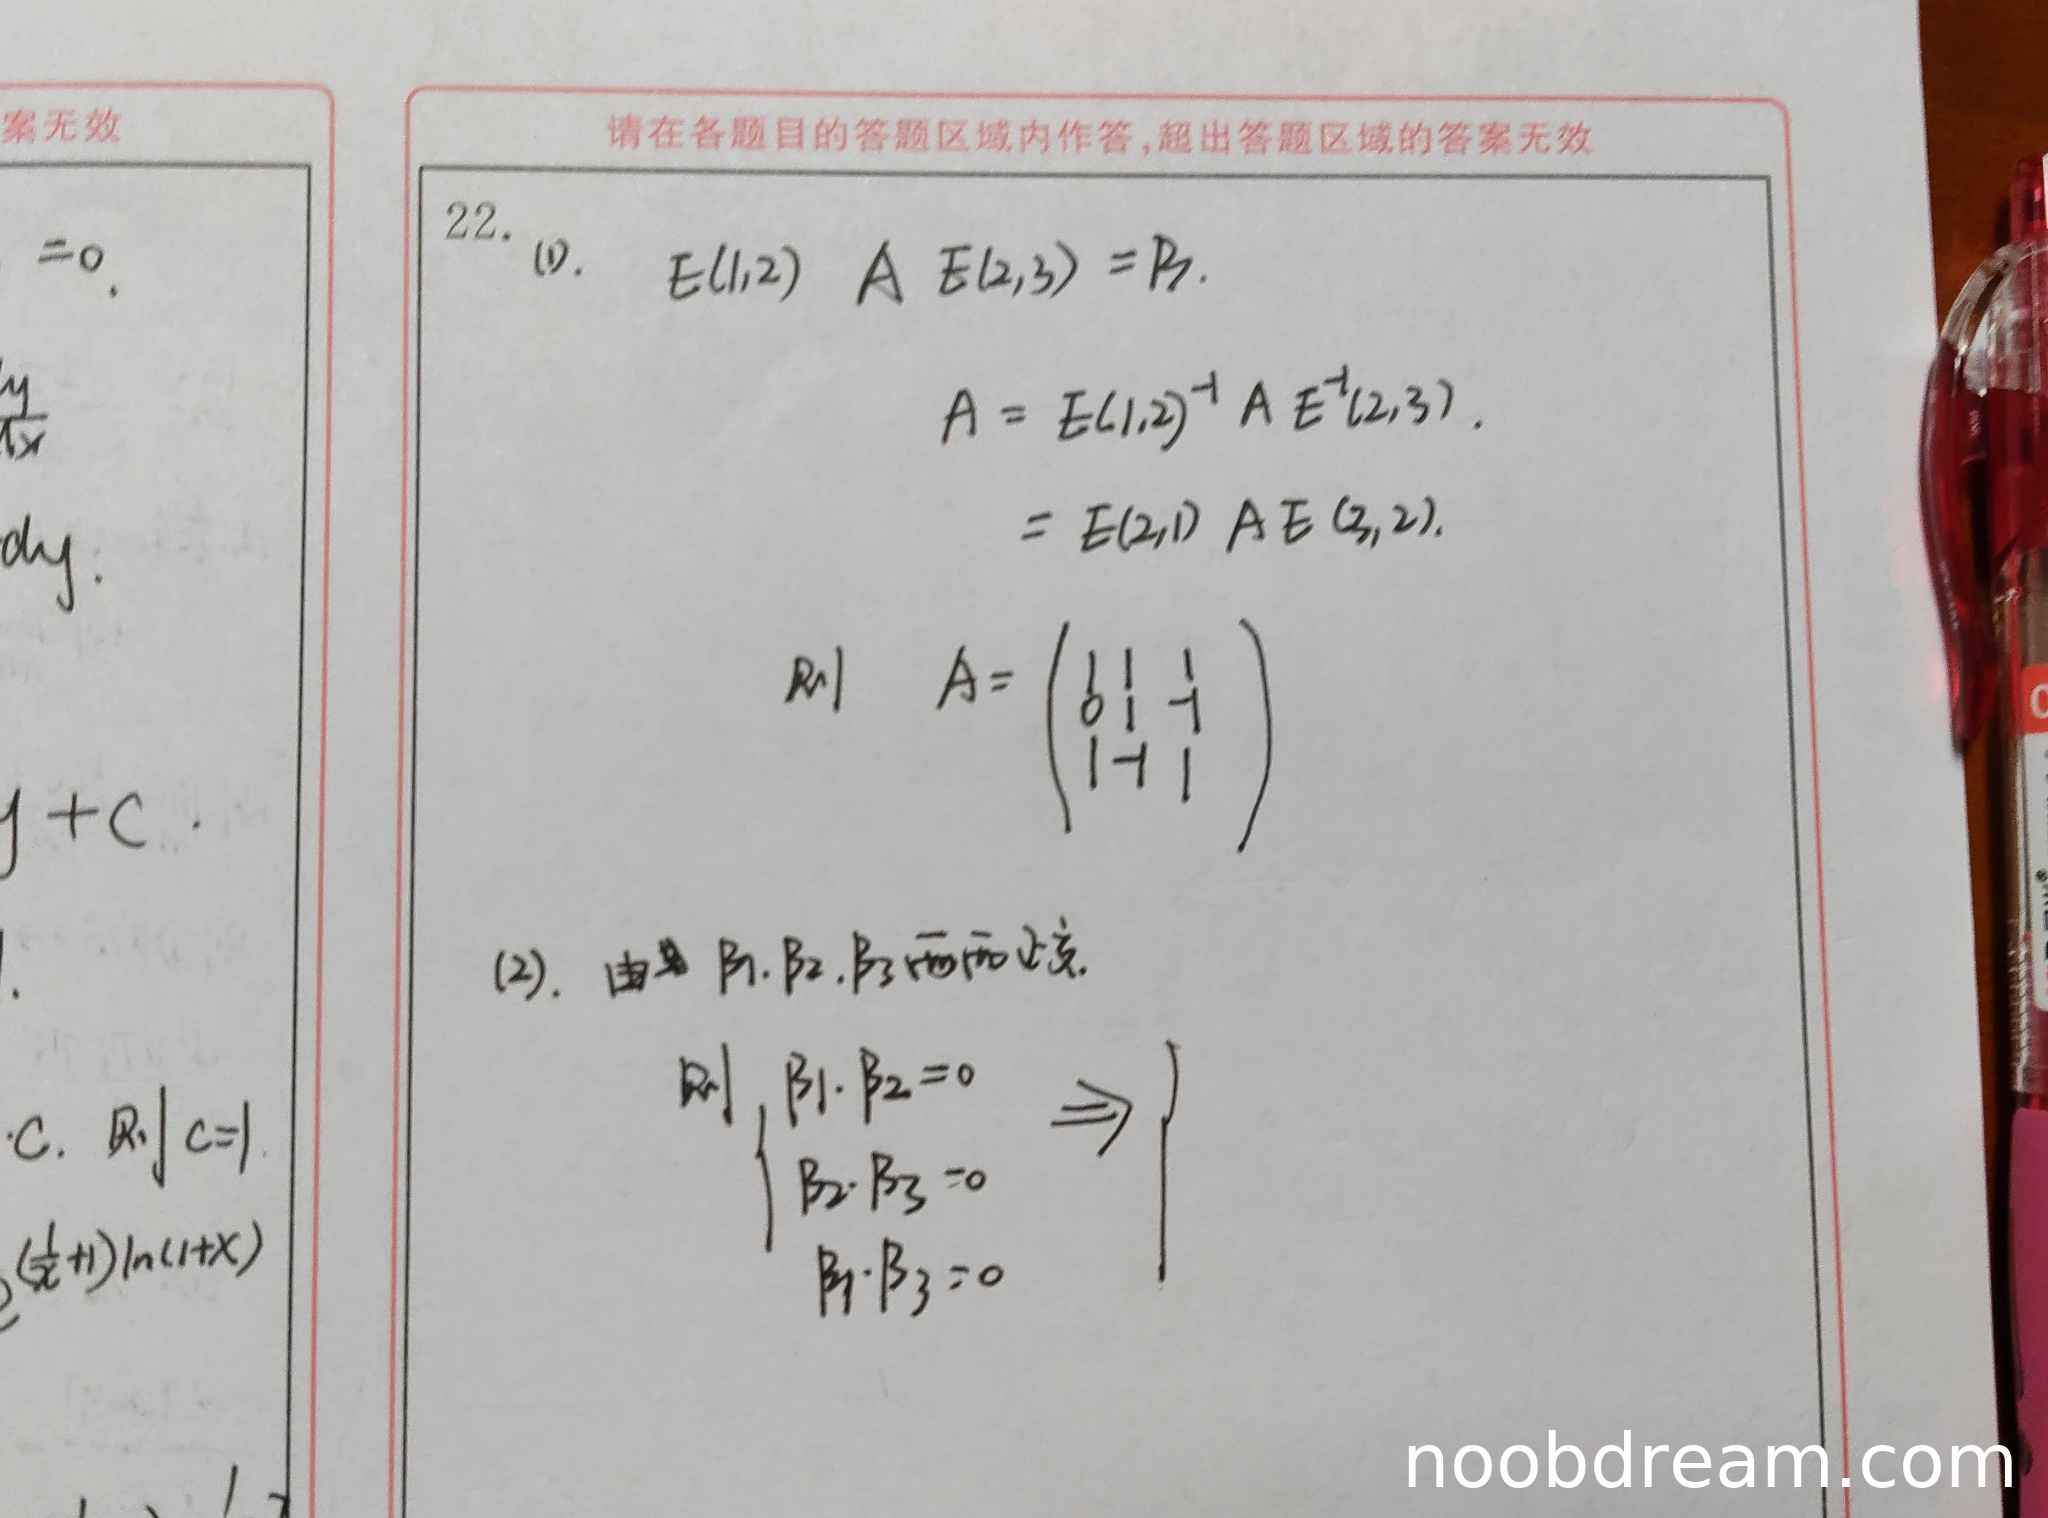 案无效
=0.
dy/dx
dy.
y + C.
1.
·C. 则 C=1.
e^{(1/x+1)ln(1+x)}
请在各题目的答题区域内作答,超出答题区域的答案无效
22. (1). E(1,2) A E(2,3) = B.
A = E(1,2)^{-1} A E^{-1}(2,3).
= E(2,1) A E(3,2).
则 A = ( 1 1 1
0 1 -1
1 -1 1 )
(2). 由 β1.β2.β3两两正交.
则 { β1·β2=0 ⇒ {
β2·β3=0
β1·β3=0
noobdream.com